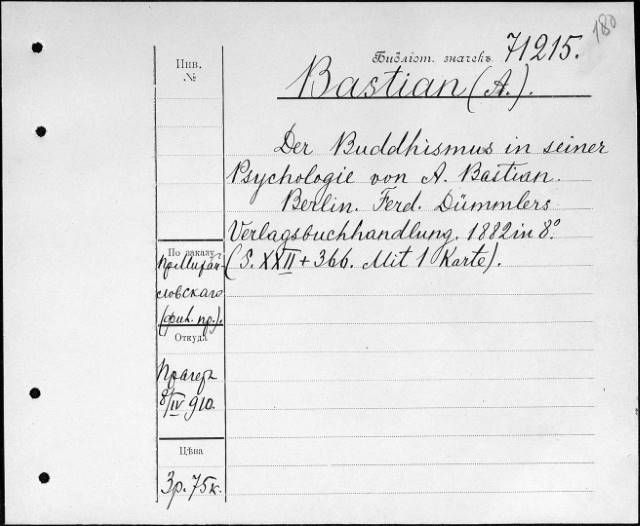 180
Библіот. значекъ 71215.
Инв.
№
Bastian (A.).
Der Buddhismus in seiner
Psychologie von A. Bastian.
Berlin. Ferd. Dümmlers
Verlagsbuchhandlung. 1882 in 8.°
(S. XXII + 366. Mit 1 Karte).
По заказу
словскаго
Откуда
Прагеръ
8/IV 910.
Цѣна
3р. 75к.